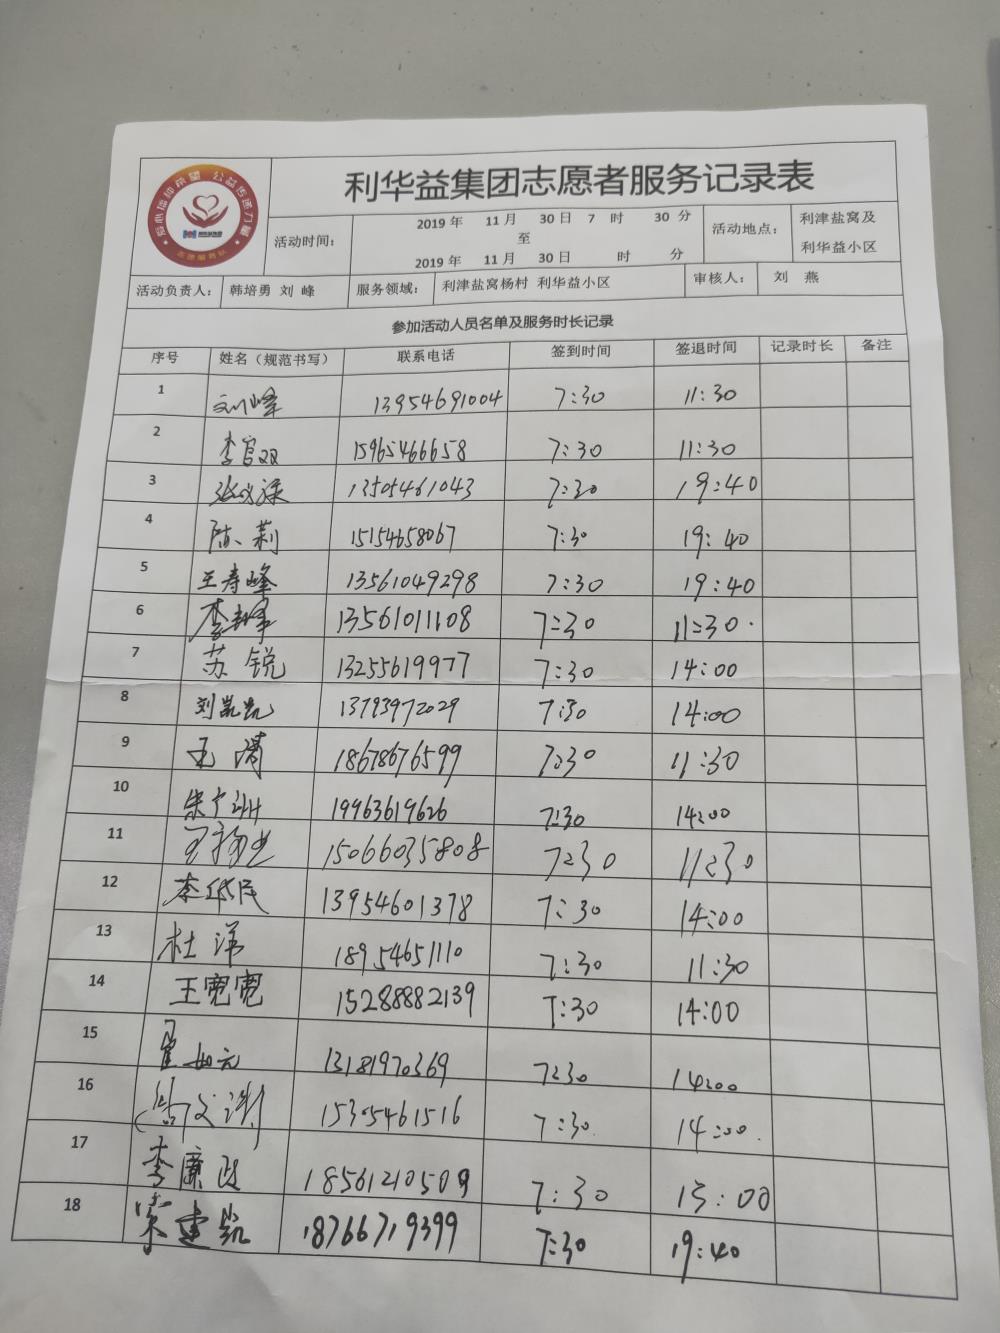 爱心播种希望 公益传递力量
志愿服务队
利华益集团志愿者服务记录表
活动时间：
2019 年 11 月 30 日 7 时 30 分
至
2019 年 11 月 30 日 时 分
活动地点：
利津盐窝及
利华益小区
活动负责人： 韩培勇 刘 峰 服务领域： 利津盐窝杨村 利华益小区 审核人： 刘 燕
参加活动人员名单及服务时长记录
序号 姓名（规范书写） 联系电话 签到时间 签退时间 记录时长 备注
1 刘峰 13954691004 7:30 11:30
2 李官双 15965466658 7:30 11:30
3 13505461043 7:30 19:40
4 陈莉 15154658067 7:30 19:40
5 王寿峰 13561049298 7:30 19:40
6 13561011108 7:30 11:30
7 苏锐 13255619977 7:30 14:00
8 刘凯凯 13793972029 7:30 14:00
9 18678676599 7:30 11:30
10 19963619626 7:30 14:00
11 15066035808 7:30 11:30
12 13954601378 7:30 14:00
13 杜洋 18954651110 7:30 11:30
14 王宽宽 15288882139 7:30 14:00
15 13181970369 7:30 14:00
16 15305461516 7:30 14:00
17 李廉政 18561210509 7:30 13:00
18 宋建凯 18766719399 7:30 19:40